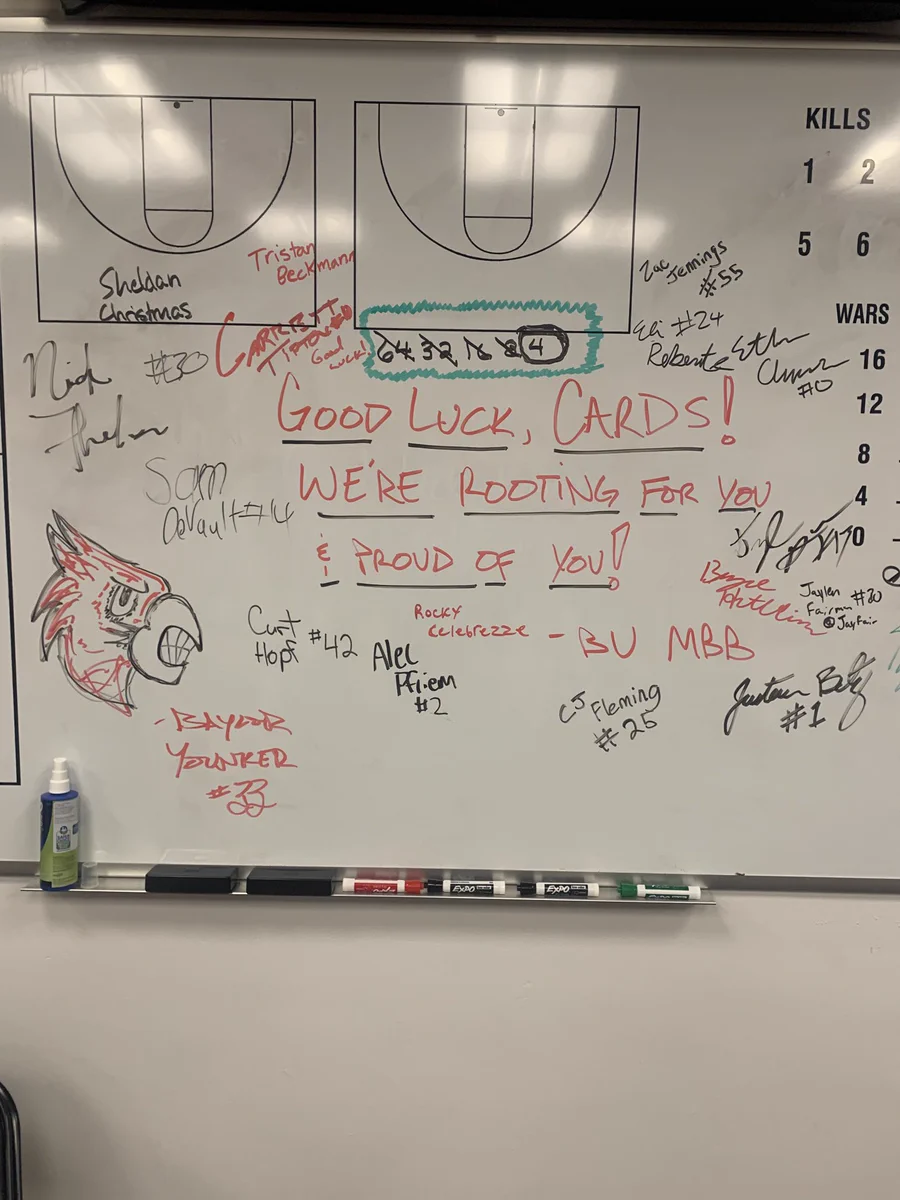 KILLS
1 2
5 6
WARS
16
12
8
4
0
Sheldon
Christmas
Tristan
Beckmann
GARRETT
TIPTON
Good
Luck!
64 32 16 8 4
Zac
Jennings
#55
Eli #24
Roberts
Ethan
#0
Nick
#30
GOOD LUCK, CARDS!
WE'RE ROOTING FOR YOU
& PROUD OF YOU!
- BU MBB
Sam
DeVault #14
Curt
Hopf #42
Alec
Pfriem
#2
Rocky
Celebrezze
CJ Fleming
#25
Jaylen #20
Fairman
@JayFair
#1
- BAYLOR
YOUNKER
#33
EXPO
EXPO